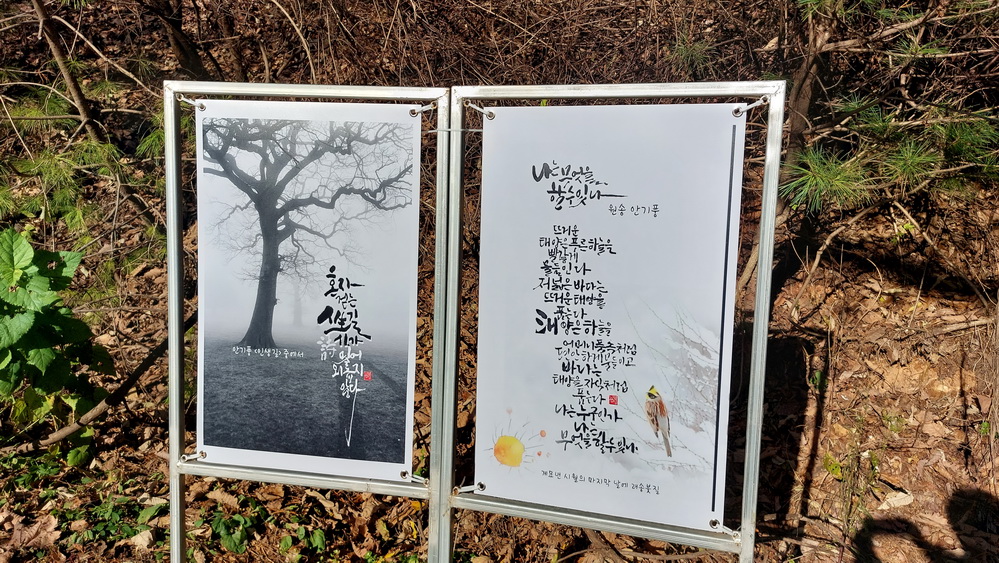 혼자
걷는
인생길
시가
있어
외롭지
않다
안기풍 <인생길> 중에서
나는 무엇을
할 수 있나
원송 안기풍
뜨거운
태양은 푸른 하늘을
빨갛게
물들인다
저 넓은 바다는
뜨거운 태양을
품는다
태양은 하늘을
어머니 품속처럼
편안하게
바다는
태양을 자식처럼
품는다
나는 누구인가
나는
무엇을 할 수 있나
시월의 마지막 날에